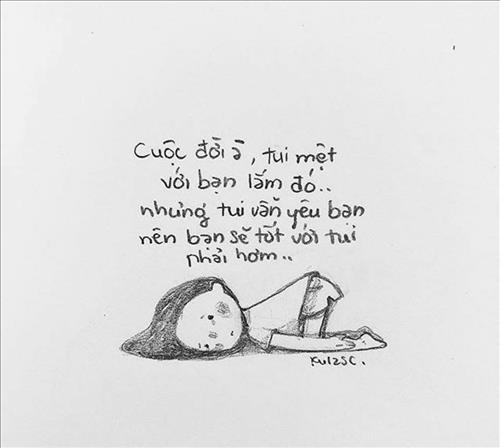 Cuộc đời à, tui mệt
với bạn lắm đó..
nhưng tui vẫn yêu bạn
nên bạn sẽ tốt với tui
phải hơm..